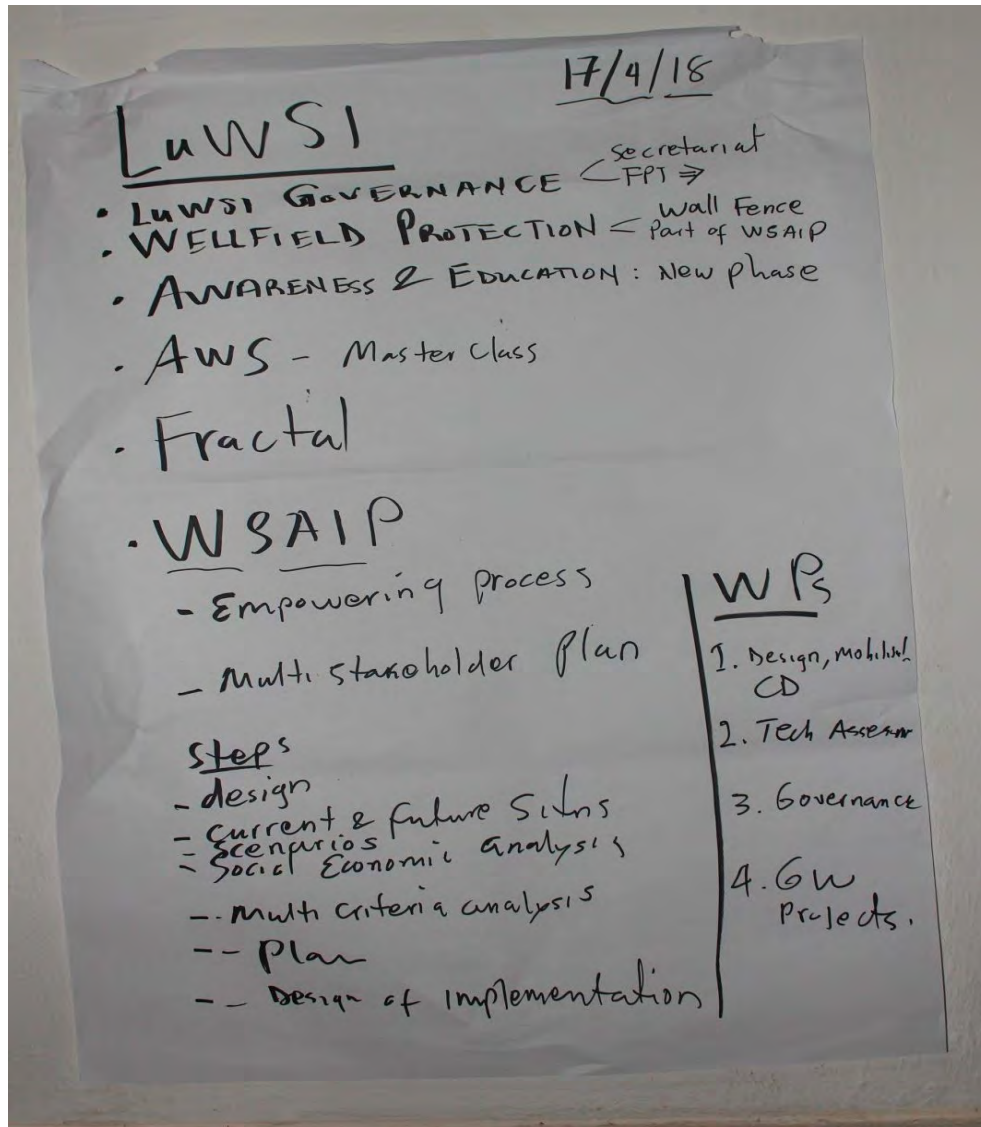 17/4/18
LuWSI
• LuWSI GOVERNANCE < secretariat
FPT ⇒
• WELLFIELD PROTECTION < Wall Fence
Part of WSAIP
• AWARENESS & EDUCATION : New phase
• AWS - Master Class
• Fractal
• WSAIP
- Empowering process
- Multi stakeholder Plan
Steps
- design
- current & future Sitns
- Scenarios
- Social Economic analysis
-- Multi criteria analysis
-- Plan
-- Design of implementation
WPs
1. Design,
CD
2. Tech
3. Governance
4. GW
Projects.